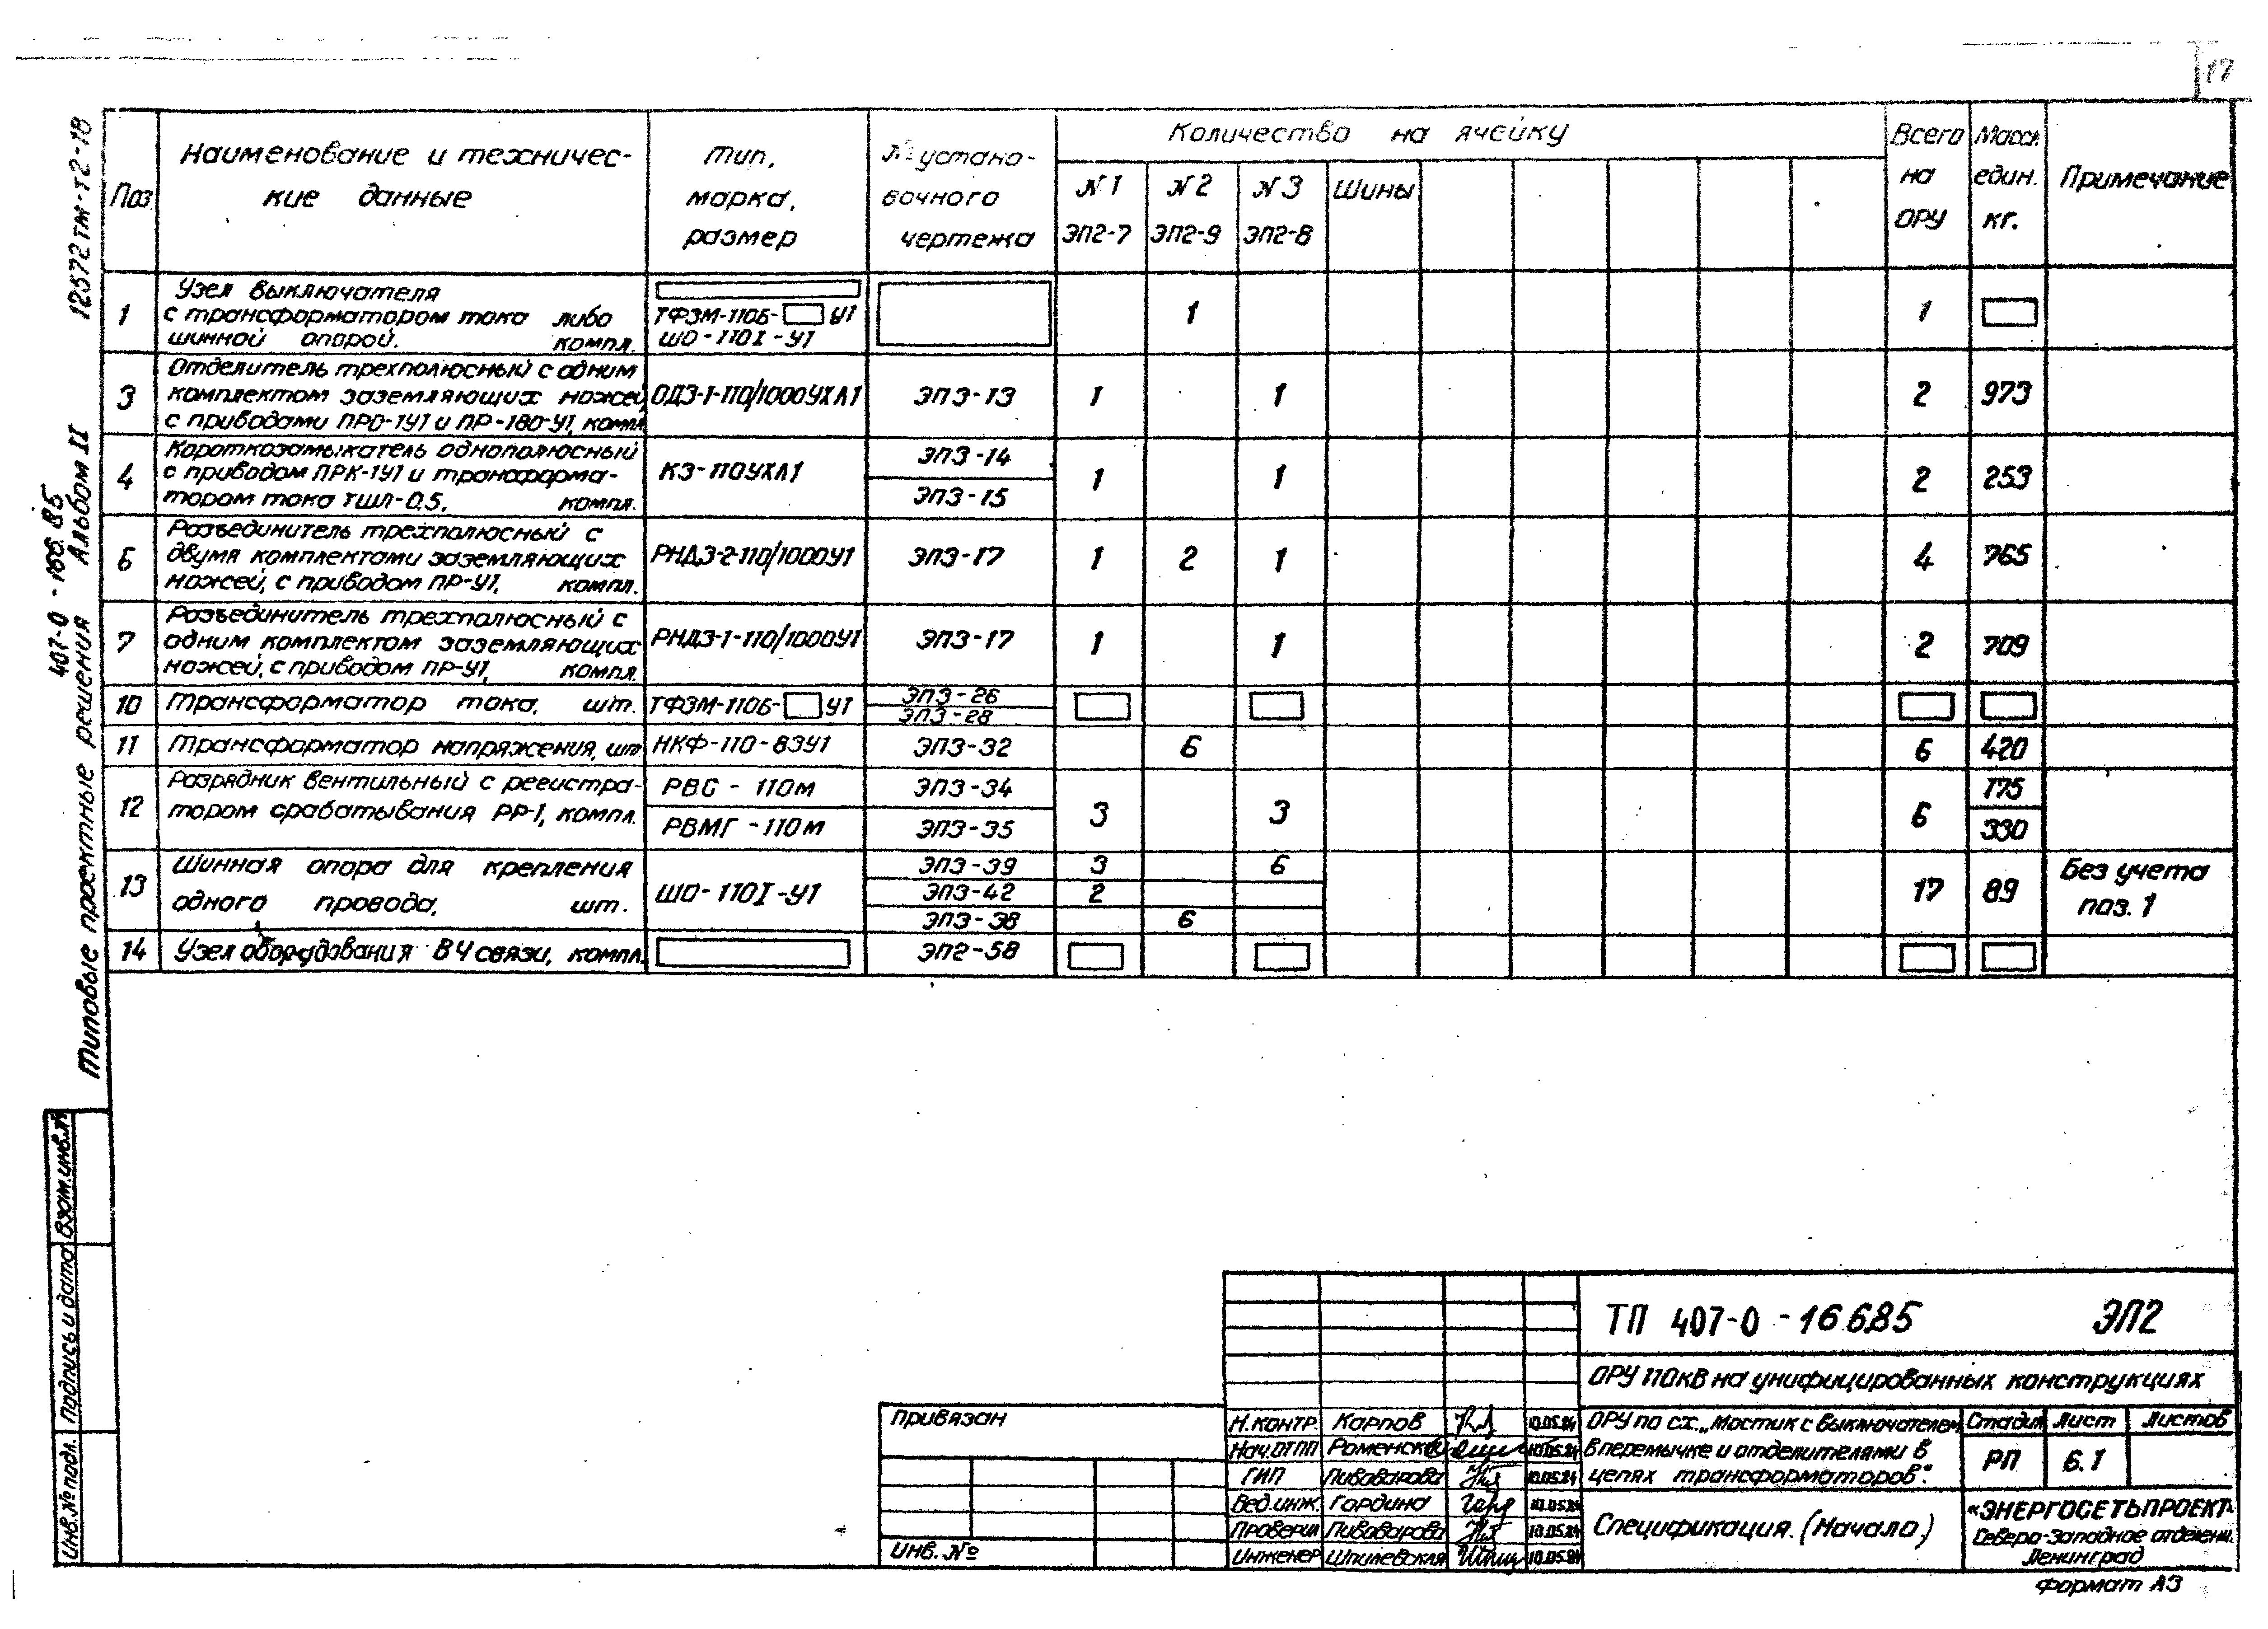 17
12572тм-т2-18
407-0-166.85
Типовые проектные решения Альбом II
Поз.
Наименование и техничес-
кие данные
Тип,
марка,
размер
№ устано-
вочного
чертежа
Количество на ячейку
N1
ЭП2-7
N2
ЭП2-9
N3
ЭП2-8
Шины
Всего
на
ОРУ
Масса
един.
кг.
Примечание
1
Узел выключателя
с трансформатором тока либо
шинной опорой. компл.
ТФЗМ-110Б- У1
ШО-110I-У1
1
1
3
Отделитель трехполюсный с одним
комплектом заземляющих ножей,
с приводами ПРО-1У1 и ПР-180-У1, компл.
ОДЗ-1-110/1000УХЛ1
ЭП3-13
1
1
2
973
4
Короткозамыкатель однополюсный
с приводом ПРК-1У1 и трансформа-
тором тока ТШЛ-0,5, компл.
КЗ-110УХЛ1
ЭП3-14
ЭП3-15
1
1
2
253
6
Разъединитель трехполюсный с
двумя комплектами заземляющих
ножей, с приводом ПР-У1, компл.
РНДЗ-2-110/1000У1
ЭП3-17
1
2
1
4
765
7
Разъединитель трехполюсный с
одним комплектом заземляющих
ножей, с приводом ПР-У1, компл.
РНДЗ-1-110/1000У1
ЭП3-17
1
1
2
709
10
Трансформатор тока, шт.
ТФЗМ-110Б- У1
ЭП3-26
ЭП3-28
11
Трансформатор напряжения, шт.
НКФ-110-83У1
ЭП3-32
6
6
420
12
Разрядник вентильный с регистра-
тором срабатывания РР-1, компл.
РВС - 110м
РВМГ - 110м
ЭП3-34
ЭП3-35
3
3
6
175
330
13
Шинная опора для крепления
одного провода, шт.
ШО-110I-У1
ЭП3-39
ЭП3-42
ЭП3-38
3
6
2
6
17
89
Без учета
поз. 1
14
Узел оборудования ВЧ связи, компл.
ЭП2-58
Взам.инв.№
Подпись и дата
Инв.№подл.
Привязан
Инв. №
Н.контр. Карпов 10.05.84
Нач.ОТПП Роменский 10.05.84
ГИП Пивоварова 10.05.84
Вед.инж. Гордина 10.05.84
Проверил Пивоварова 10.05.84
Инженер Шпилевская 10.05.84
ТП 407-0-166.85 ЭП2
ОРУ 110кВ на унифицированных конструкциях
ОРУ по сх. „Мостик с выключателем
в перемычке и отделителями в
цепях трансформаторов".
Стадия Лист Листов
РП 6.1
Спецификация. (Начало)
«ЭНЕРГОСЕТЬПРОЕКТ»
Северо-Западное отделение
Ленинград
Формат А3